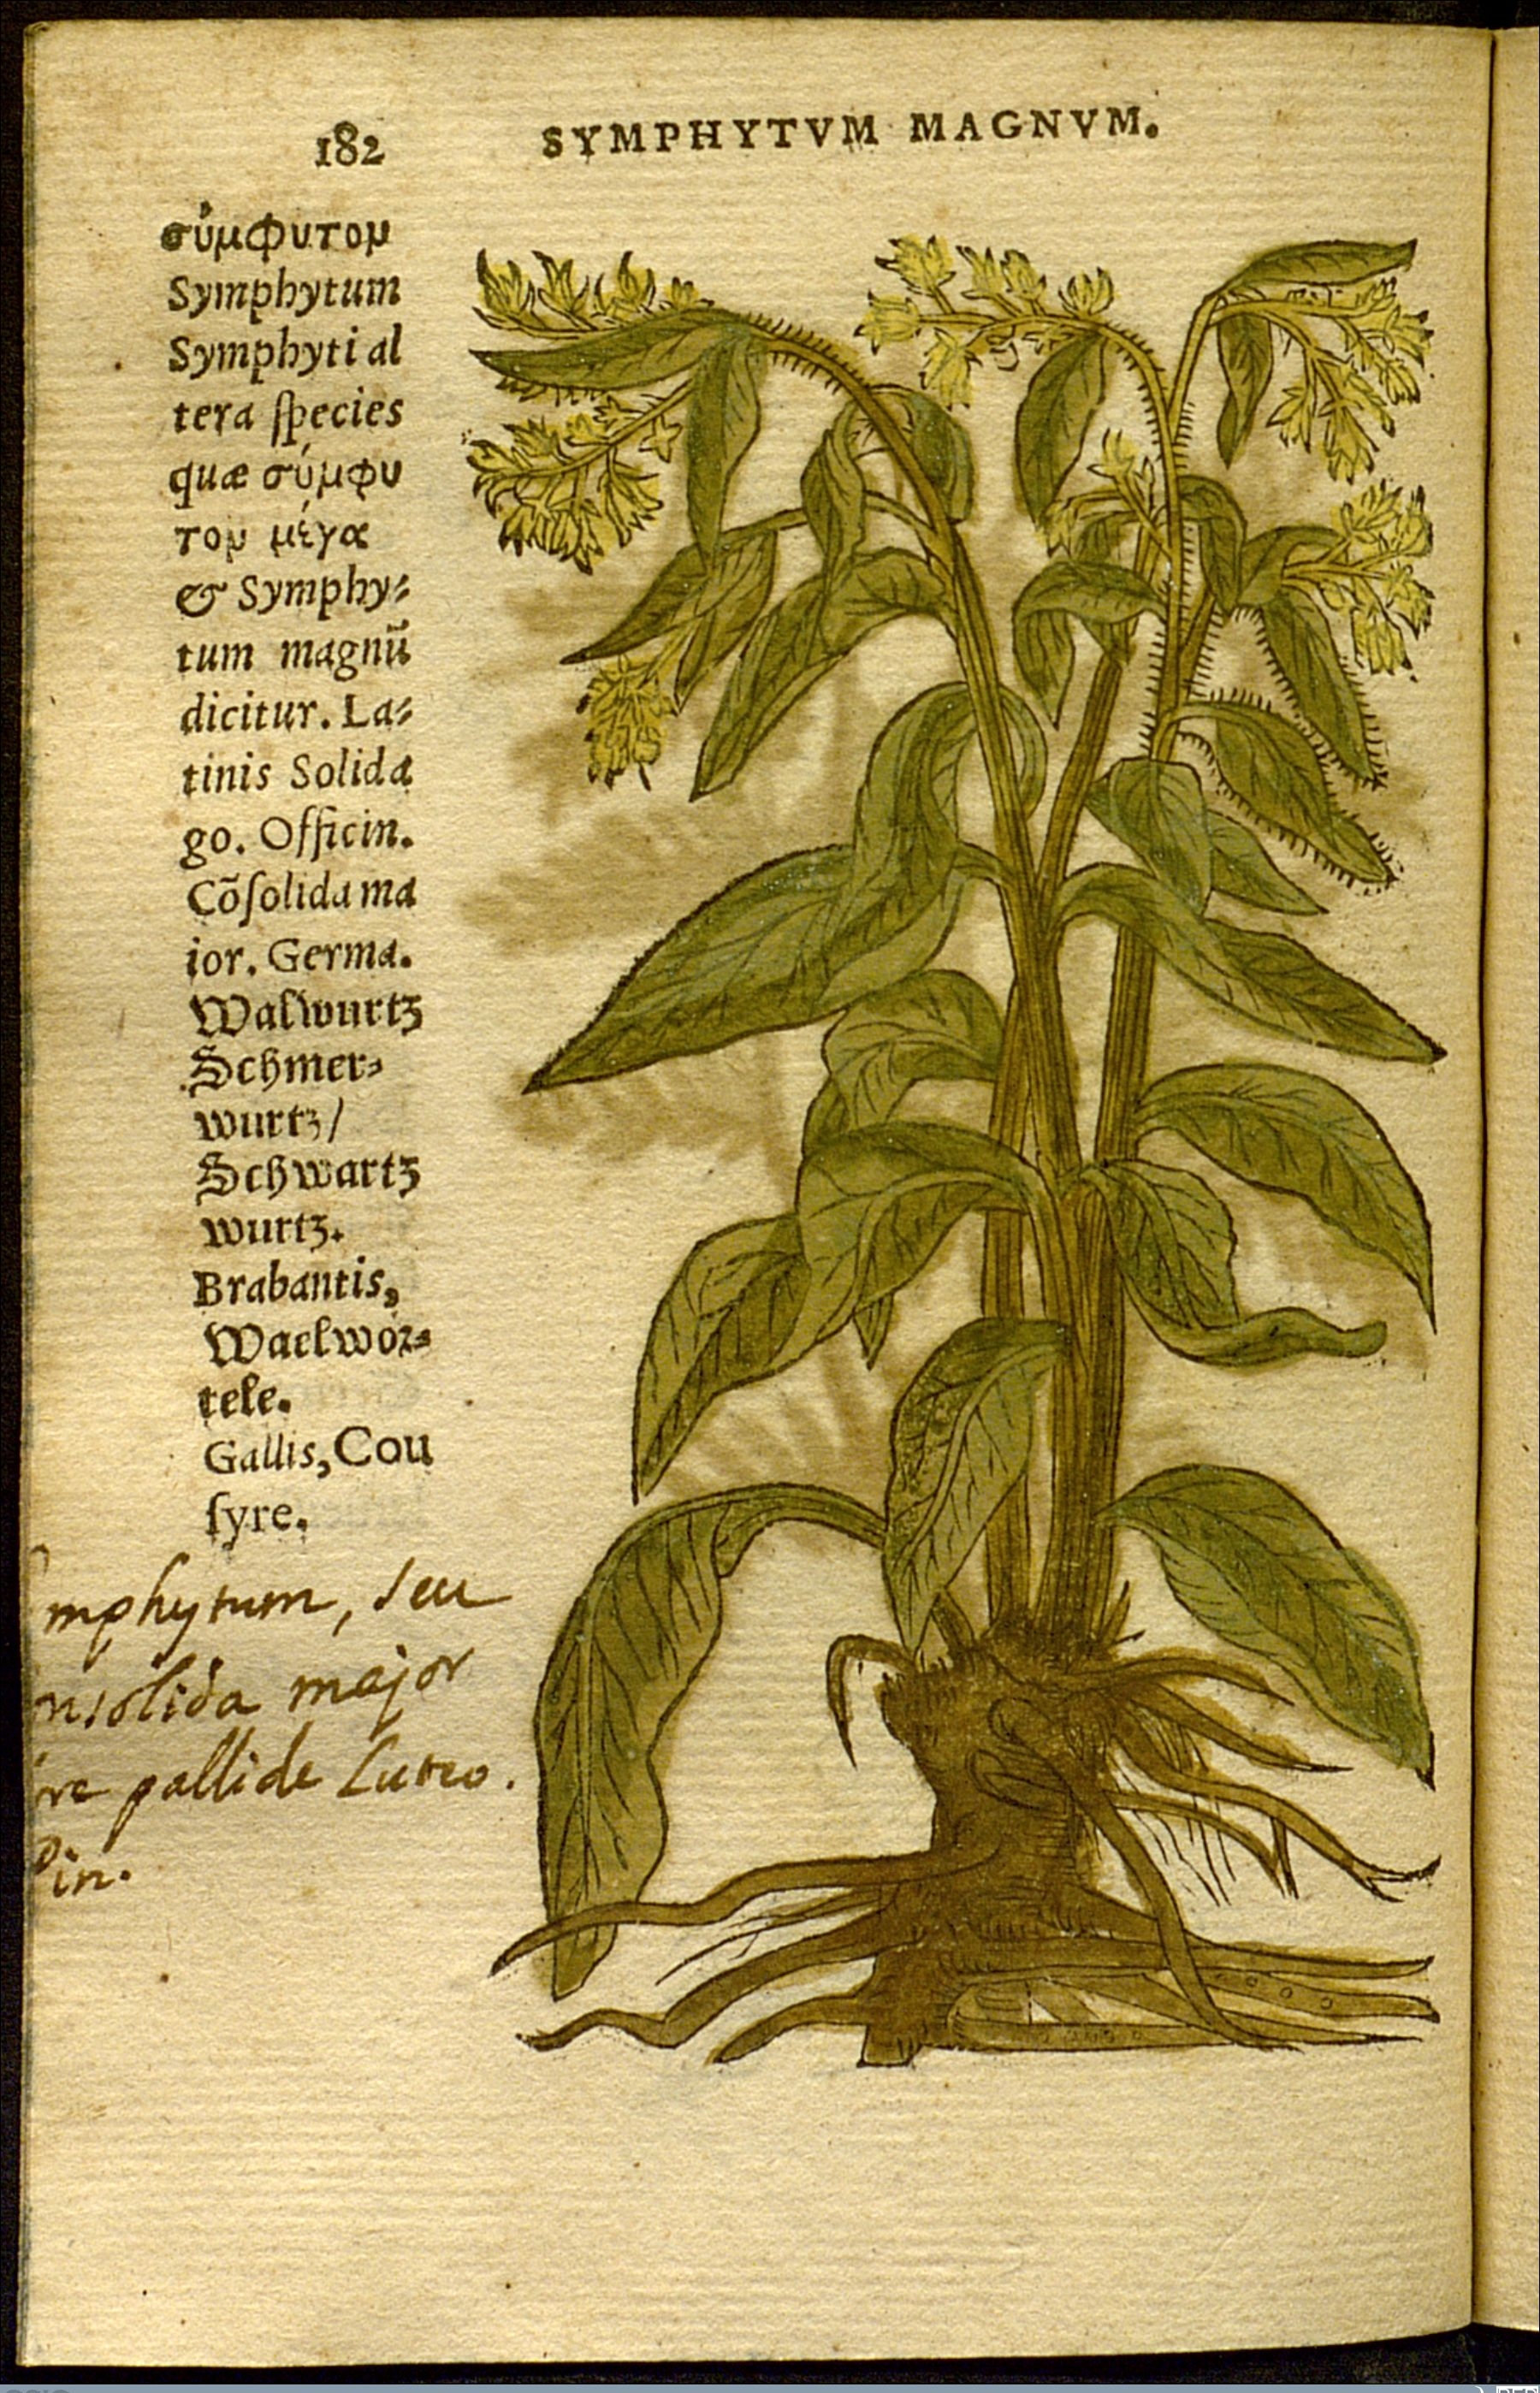 182 SYMPHYTVM MAGNVM.
σύμφυτομ
Symphytum
Symphyti al
tera ſpecies
quæ σύμφυ
τομ μέγα
& Symphy⸗
tum magnū
dicitur. La⸗
tinis Solida
go. Officin.
Cõſolida ma
ior. Germa.
Walwurtz
Schmer⸗
wurtz/
Schwartz
wurtz.
Brabantis,
Waelwor⸗
tele.
Gallis, Cou
ſyre.
mphytum, seu
nsolida major
ore pallide Luteo.
Pin.